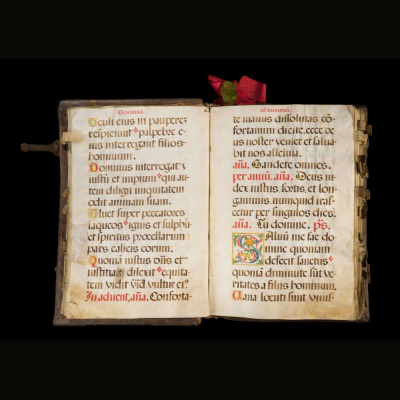 Dominica.
Oculi eius in pauperez
respiciunt palpebre e-
ius interrogant filios
hominum.
Dominus interrogat
iustū et impiū qui au-
tem diligit iniquitatem
odit animam suam.
Pluet super peccatores
laqueos ignis et sulphu
et spiritus procellarum
pars calicis eorum.
Quoniā iustus dn̄s et
iustitias dilexit equita-
tem vidit vult' ei'
In aduent. an̄a. Conforta-
ad matutinū.
te manus dissolutas cō-
fortamini dicite. ecce de
us noster veniet et salua
bit nos alleluia.
an̄a. Gaudete omnes.
per annū. an̄a. Deus iu-
dex iustus fortis, et lon-
ganimis nunquid iras-
cetur per singulos dies.
an̄a. Tu domine. ps.
Saluū me fac do
mine quoniam
defecit sanctus
quoniā diminute sūt ve-
ritates a filiis hominum.
Uana locuti sunt unus-